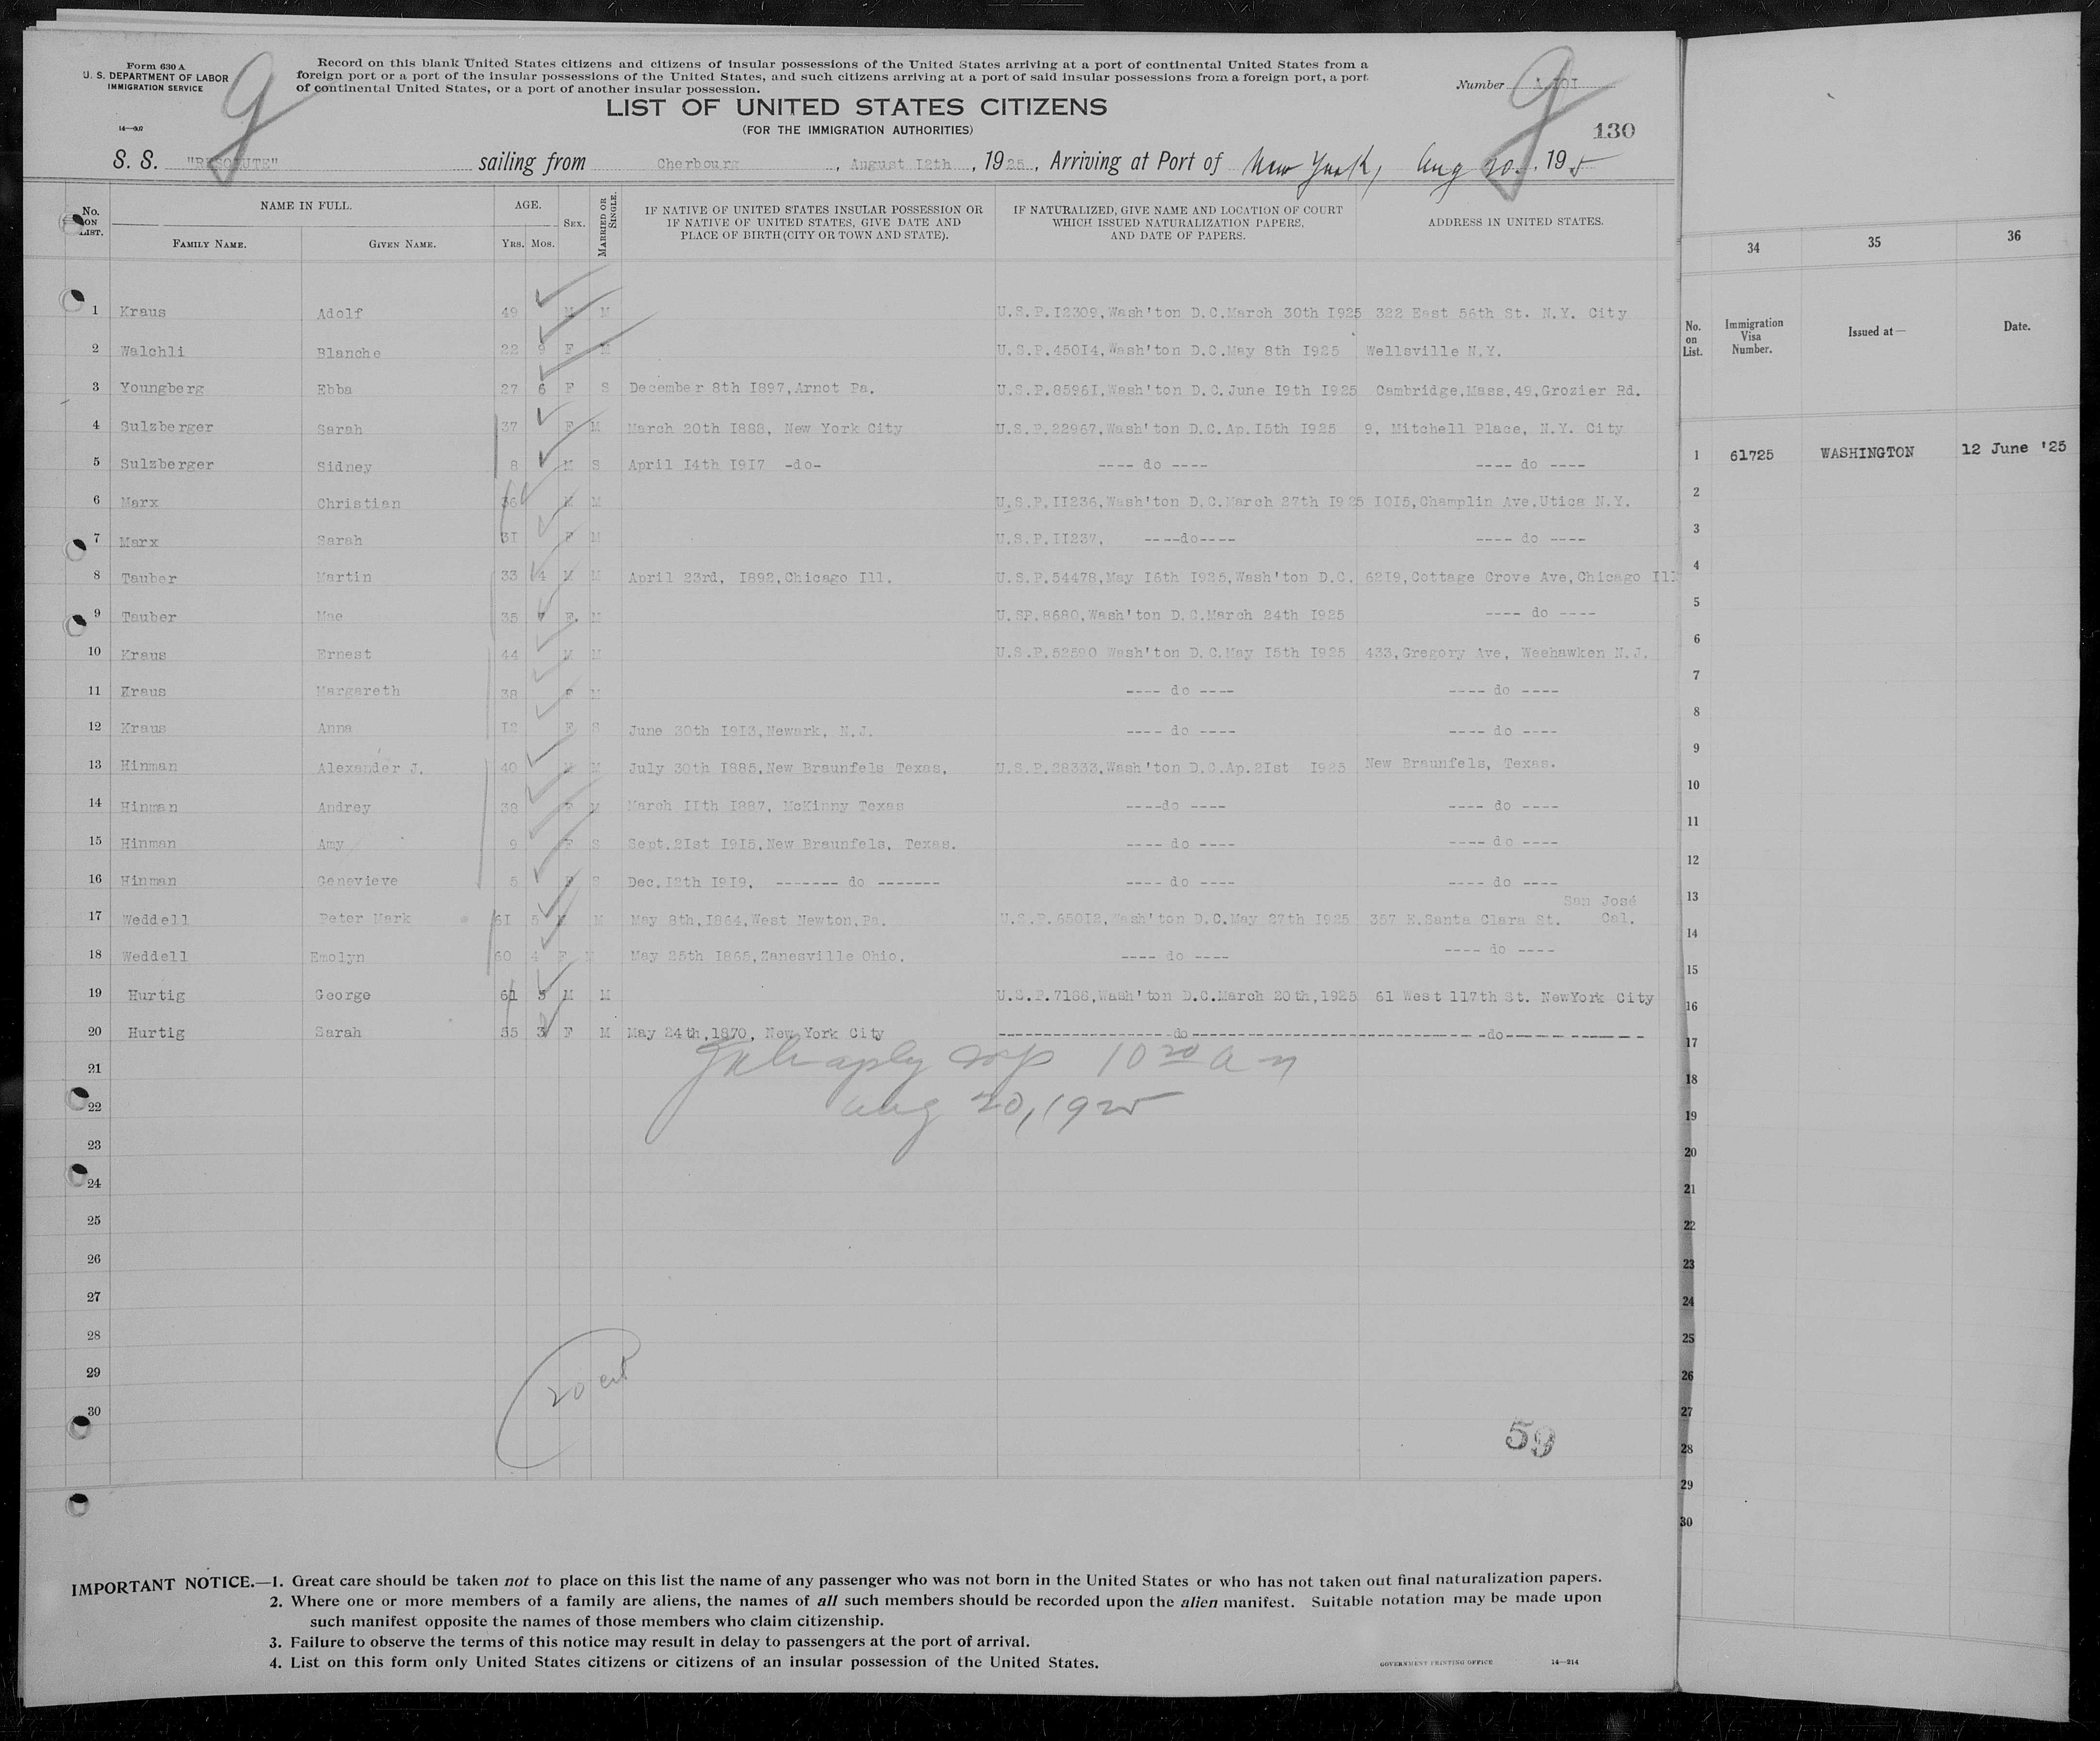 Form 630 A
U. S. DEPARTMENT OF LABOR
IMMIGRATION SERVICE
14—
Record on this blank United States citizens and citizens of insular possessions of the United States arriving at a port of continental United States from a
foreign port or a port of the insular possessions of the United States, and such citizens arriving at a port of said insular possessions from a foreign port, a port
of continental United States, or a port of another insular possession.
Number
LIST OF UNITED STATES CITIZENS
(FOR THE IMMIGRATION AUTHORITIES)
130
S. S. "RESOLUTE" sailing from Cherbourg, August I2th, 1925, Arriving at Port of New York, Aug 20. 1925
No. ON LIST. NAME IN FULL. FAMILY NAME. GIVEN NAME. AGE. YRS. MOS. SEX. MARRIED OR SINGLE. IF NATIVE OF UNITED STATES INSULAR POSSESSION OR IF NATIVE OF UNITED STATES, GIVE DATE AND PLACE OF BIRTH (CITY OR TOWN AND STATE). IF NATURALIZED, GIVE NAME AND LOCATION OF COURT WHICH ISSUED NATURALIZATION PAPERS, AND DATE OF PAPERS. ADDRESS IN UNITED STATES.
1 Kraus Adolf 49 M M U.S.P.I2309,Wash'ton D.C.March 30th I925 322 East 56th St. N.Y. City
2 Walchli Blanche 22 9 F M U.S.P.450I4,Wash'ton D.C.May 8th I925 Wellsville N.Y.
3 Youngberg Ebba 27 6 F S December 8th I897,Arnot Pa. U.S.P.8596I,Wash'ton D.C.June I9th I925 Cambridge,Mass,49,Grozier Rd.
4 Sulzberger Sarah 37 F M March 20th I888, New York City U.S.P.22967,Wash'ton D.C.Ap.I5th I925 9, Mitchell Place, N.Y. City
5 Sulzberger Sidney 8 M S April I4th I9I7 -do- ---- do ---- ---- do ----
6 Marx Christian 36 M M U.S.P.II236,Wash'ton D.C.March 27th I925 I0I5,Champlin Ave,Utica N.Y.
7 Marx Sarah 3I F M U.S.P.II237, ----do---- ---- do ----
8 Tauber Martin 33 4 M M April 23rd, I892,Chicago Ill. U.S.P.54478,May I6th I925,Wash'ton D.C. 62I9,Cottage Grove Ave,Chicago Ill
9 Tauber Mae 35 F. M U.SP.8680,Wash'ton D.C.March 24th I925 ---- do ----
10 Kraus Ernest 44 M M U.S.P.52590 Wash'ton D.C.May I5th I925 433,Gregory Ave, Weehawken N.J.
11 Kraus Margareth 38 F M ---- do ---- ---- do ----
12 Kraus Anna I2 F S June 30th I9I3,Newark, N.J. ---- do ---- ---- do ----
13 Hinman Alexander J. 40 M M July 30th I885,New Braunfels Texas, U.S.P.28333,Wash'ton D.C.Ap.2Ist I925 New Braunfels, Texas.
14 Hinman Andrey 38 F M March IIth I887, McKinny Texas ----do ---- ---- do ----
15 Hinman Amy 9 F S Sept.2Ist I9I5,New Braunfels, Texas. ---- do ---- ---- do ----
16 Hinman Genevieve 5 F S Dec.I2th I9I9, ------- do ------- ---- do ---- ---- do ----
17 Weddell Peter Mark 6I 5 M M May 8th,I864,West Newton,Pa. U.S.P.650I2,Wash'ton D.C.May 27th I925 357 E.Santa Clara St. San José Cal.
18 Weddell Emolyn 60 4 F M May 25th I865,Zanesville Ohio. ---- do ---- ---- do ----
19 Hurtig George 61 5 M M U.S.P.7188,Wash'ton D.C.March 20th,1925 61 West 117th St. NewYork City
20 Hurtig Sarah 55 3 F M May 24th,1870, New York City --------do-------- --------do--------
10 20 a m
Aug 20, 1925
21
22
23
24
25
26
27
28
29
30
20
59
IMPORTANT NOTICE.—1. Great care should be taken not to place on this list the name of any passenger who was not born in the United States or who has not taken out final naturalization papers.
2. Where one or more members of a family are aliens, the names of all such members should be recorded upon the alien manifest. Suitable notation may be made upon
such manifest opposite the names of those members who claim citizenship.
3. Failure to observe the terms of this notice may result in delay to passengers at the port of arrival.
4. List on this form only United States citizens or citizens of an insular possession of the United States.
GOVERNMENT PRINTING OFFICE 14—214
34 35 36
No. on List. Immigration Visa Number. Issued at— Date.
1 61725 WASHINGTON 12 June '25
2
3
4
5
6
7
8
9
10
11
12
13
14
15
16
17
18
19
20
21
22
23
24
25
26
27
28
29
30